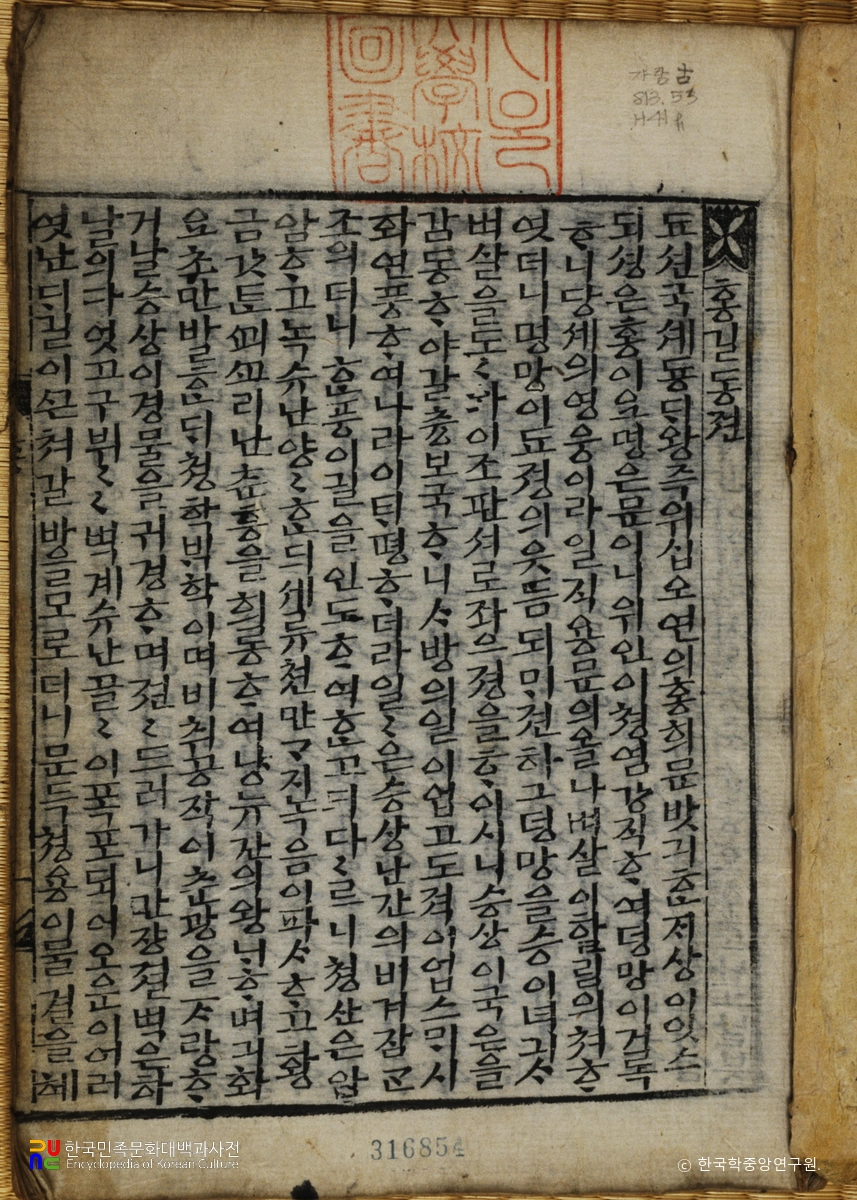 홍길동젼
됴션국셰둉ᄃᆡ왕즉위십오연의홍희문밧긔ᄒᆞᆫᄌᆡ상이잇스
되셩은홍이요명은문이니위인이쳥염강직ᄒᆞ여덕망이거록
ᄒᆞ니당셰의영웅이라일직용문의올나벼살이할림의쳐ᄒᆞ
엿더니명망이됴졍의읏듬되ᄆᆡ젼하그덕망을승이녀긔ᄉᆞ
벼살을도〻와이조판셔로좌으졍을ᄒᆞ이시니승상이국은을
감동ᄒᆞ야갈츙보국ᄒᆞ니ᄉᆞ방의일이업고도젹이업스ᄆᆡ시
화연풍ᄒᆞ여나라이ᄐᆡ평ᄒᆞ더라일〻은승상난간의비겨잠ᄭᅡᆫ
조의더니ᄒᆞᆫ풍이길을인도ᄒᆞ여ᄒᆞᆫ고ᄃᆡ다〻르니쳥산은암
암ᄒᆞ고녹슈난양〻ᄒᆞᆫᄃᆡ셰류쳔만가지녹음이파ᄉᆞᄒᆞ고황
금갓ᄐᆞᆫᄭᅬᄭᅩ리난춘흥을희롱ᄒᆞ여냥뉴간의왕ᄂᆡᄒᆞ며긔화
요초만발ᄒᆞᆫᄃᆡ쳥학ᄇᆡᆨ학이며비취공작이춘광을ᄌᆞ랑ᄒᆞ
거날승상이경물을귀경ᄒᆞ며졈〻드러가니만쟝졀벽은하
날의다엿고구뷔〻〻벽계슈난골〻이폭포되어오운이어러
엿난ᄃᆡ길이ᄭᅳᆫ쳐갈방을모로더니문득쳥용이물결을헤
가람古
813.53
316854
한국민족문화대백과사전
Encyclopedia of Korean Culture
© 한국학중앙연구원